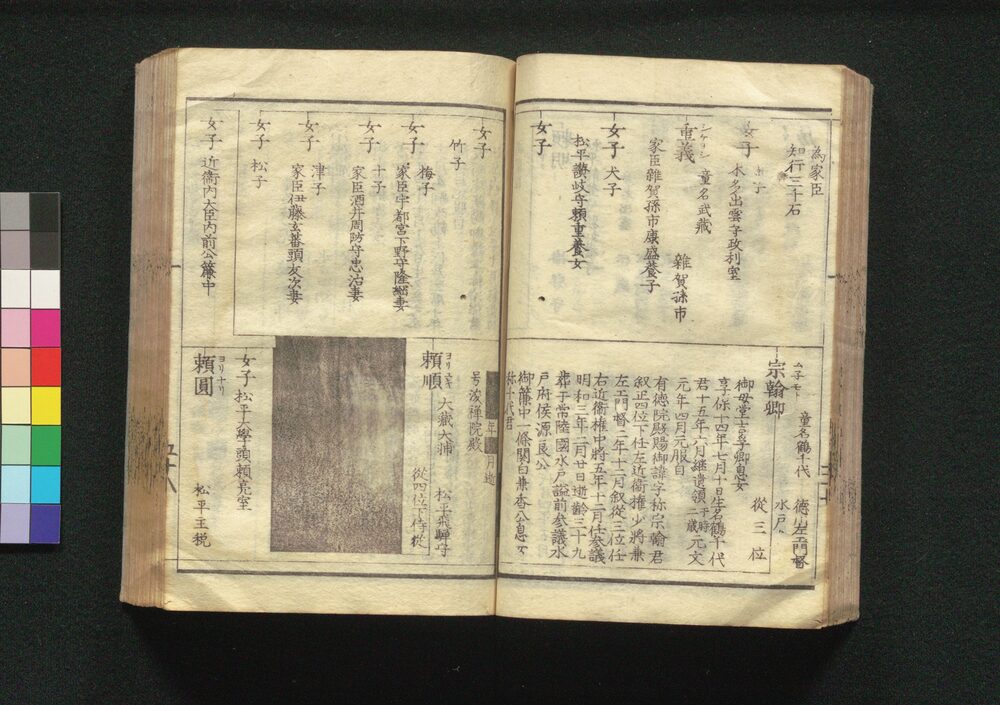 為家臣
知行三千石
女子
本多出雲守政利室
シケヨシ
重義 童名武蔵 雜賀孫市
家臣雜賀孫市康盛養子
女子 犬子
松平讚岐守頼重養女
女子
ムネモト
宗翰卿 童名鶴千代 徳左衛門督
水戸
從三位
御母堂
享保十四年七月十日生名鶴千代
君十五年六月継遺領于時二歳元文
元年四月元服自
有徳院殿賜御諱字称宗翰君
叙正四位下任左近衛権少將兼
左衛門督二年十二月叙從三位任
右近衛権中將五年十二月任参議
明和三年二月廿日逝齢三十九
葬于常陸國水戸謚前参議水
戸府侯源良公
御簾中一條関白兼香公息女
称千代君
女子
竹子
女子 梅子
家臣宇都宮下野守隆綱妻
女子 十子
家臣酒井周防守忠治妻
女子 津子
家臣伊藤玄蕃頭友次妻
女子 松子
女子 近衛内大臣内前公簾中
年 月逝
号浚禅院殿
頼順 大蔵大輔 松平飛騨守
從四位下侍從
女子 松平大學頭頼亮室
ヨリナリ
頼圓 松平主税